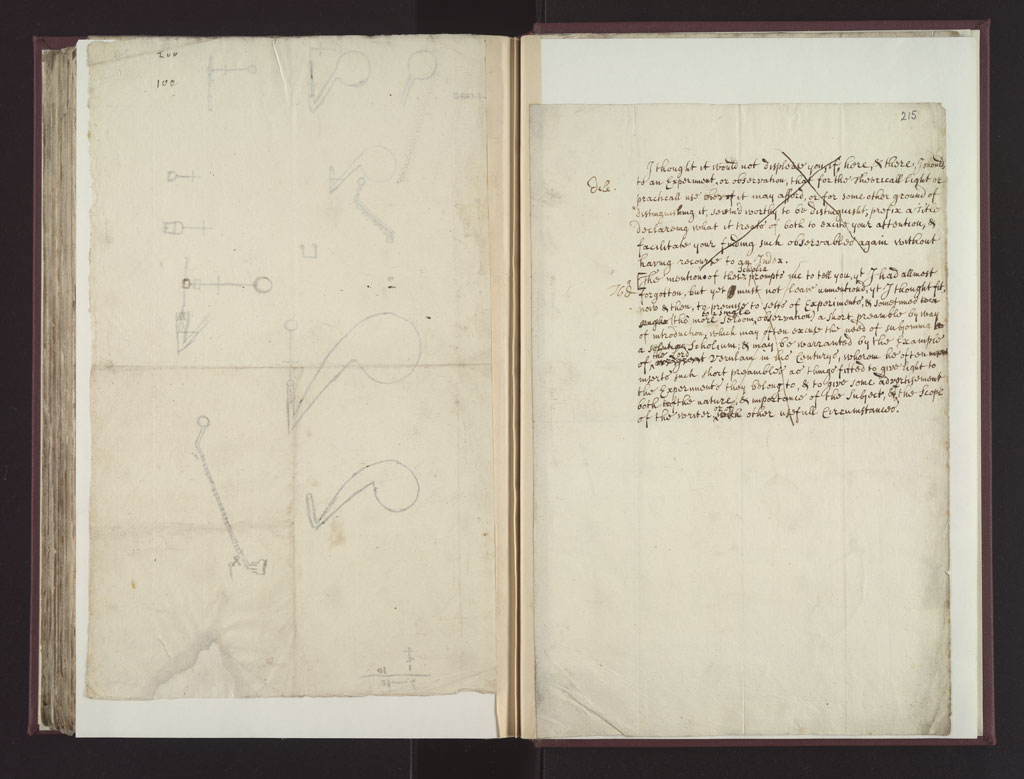 200
100
215
I thought it would not displease you, if, here, & there, I should
dele.
to an Experiment, or observation, that for the Theoricall light or
practicall use whereof it may afford, or for some other ground of
distinguishing it, seem'd worthy to be distinguisht, prefix a Title
declaring what it treats of both to excite your attention, &
facilitate your finding such observables again without
having recourse to an Index.
The mention of these Scholia prompts me to tell you, yt I had allmost
forgotten, but yet must not leave unmention'd, yt I thought fit,
now & then, to premise to setts of Experiments, & sometimes to a
single (tho more seldom, observation) a short preamble by way
of introduction, which may often excuse the need of subjoining
a Scholium; & may be warranted by the Example
of the Lord Verulam in his Centurys, wherein he often
inserts such short preambles as things fitted to give light to
the Experiments they belong to, & to give some advertisement
both of the nature, & importance of the Subject, of the Scope
of the writer, or of other usefull Circumstances.